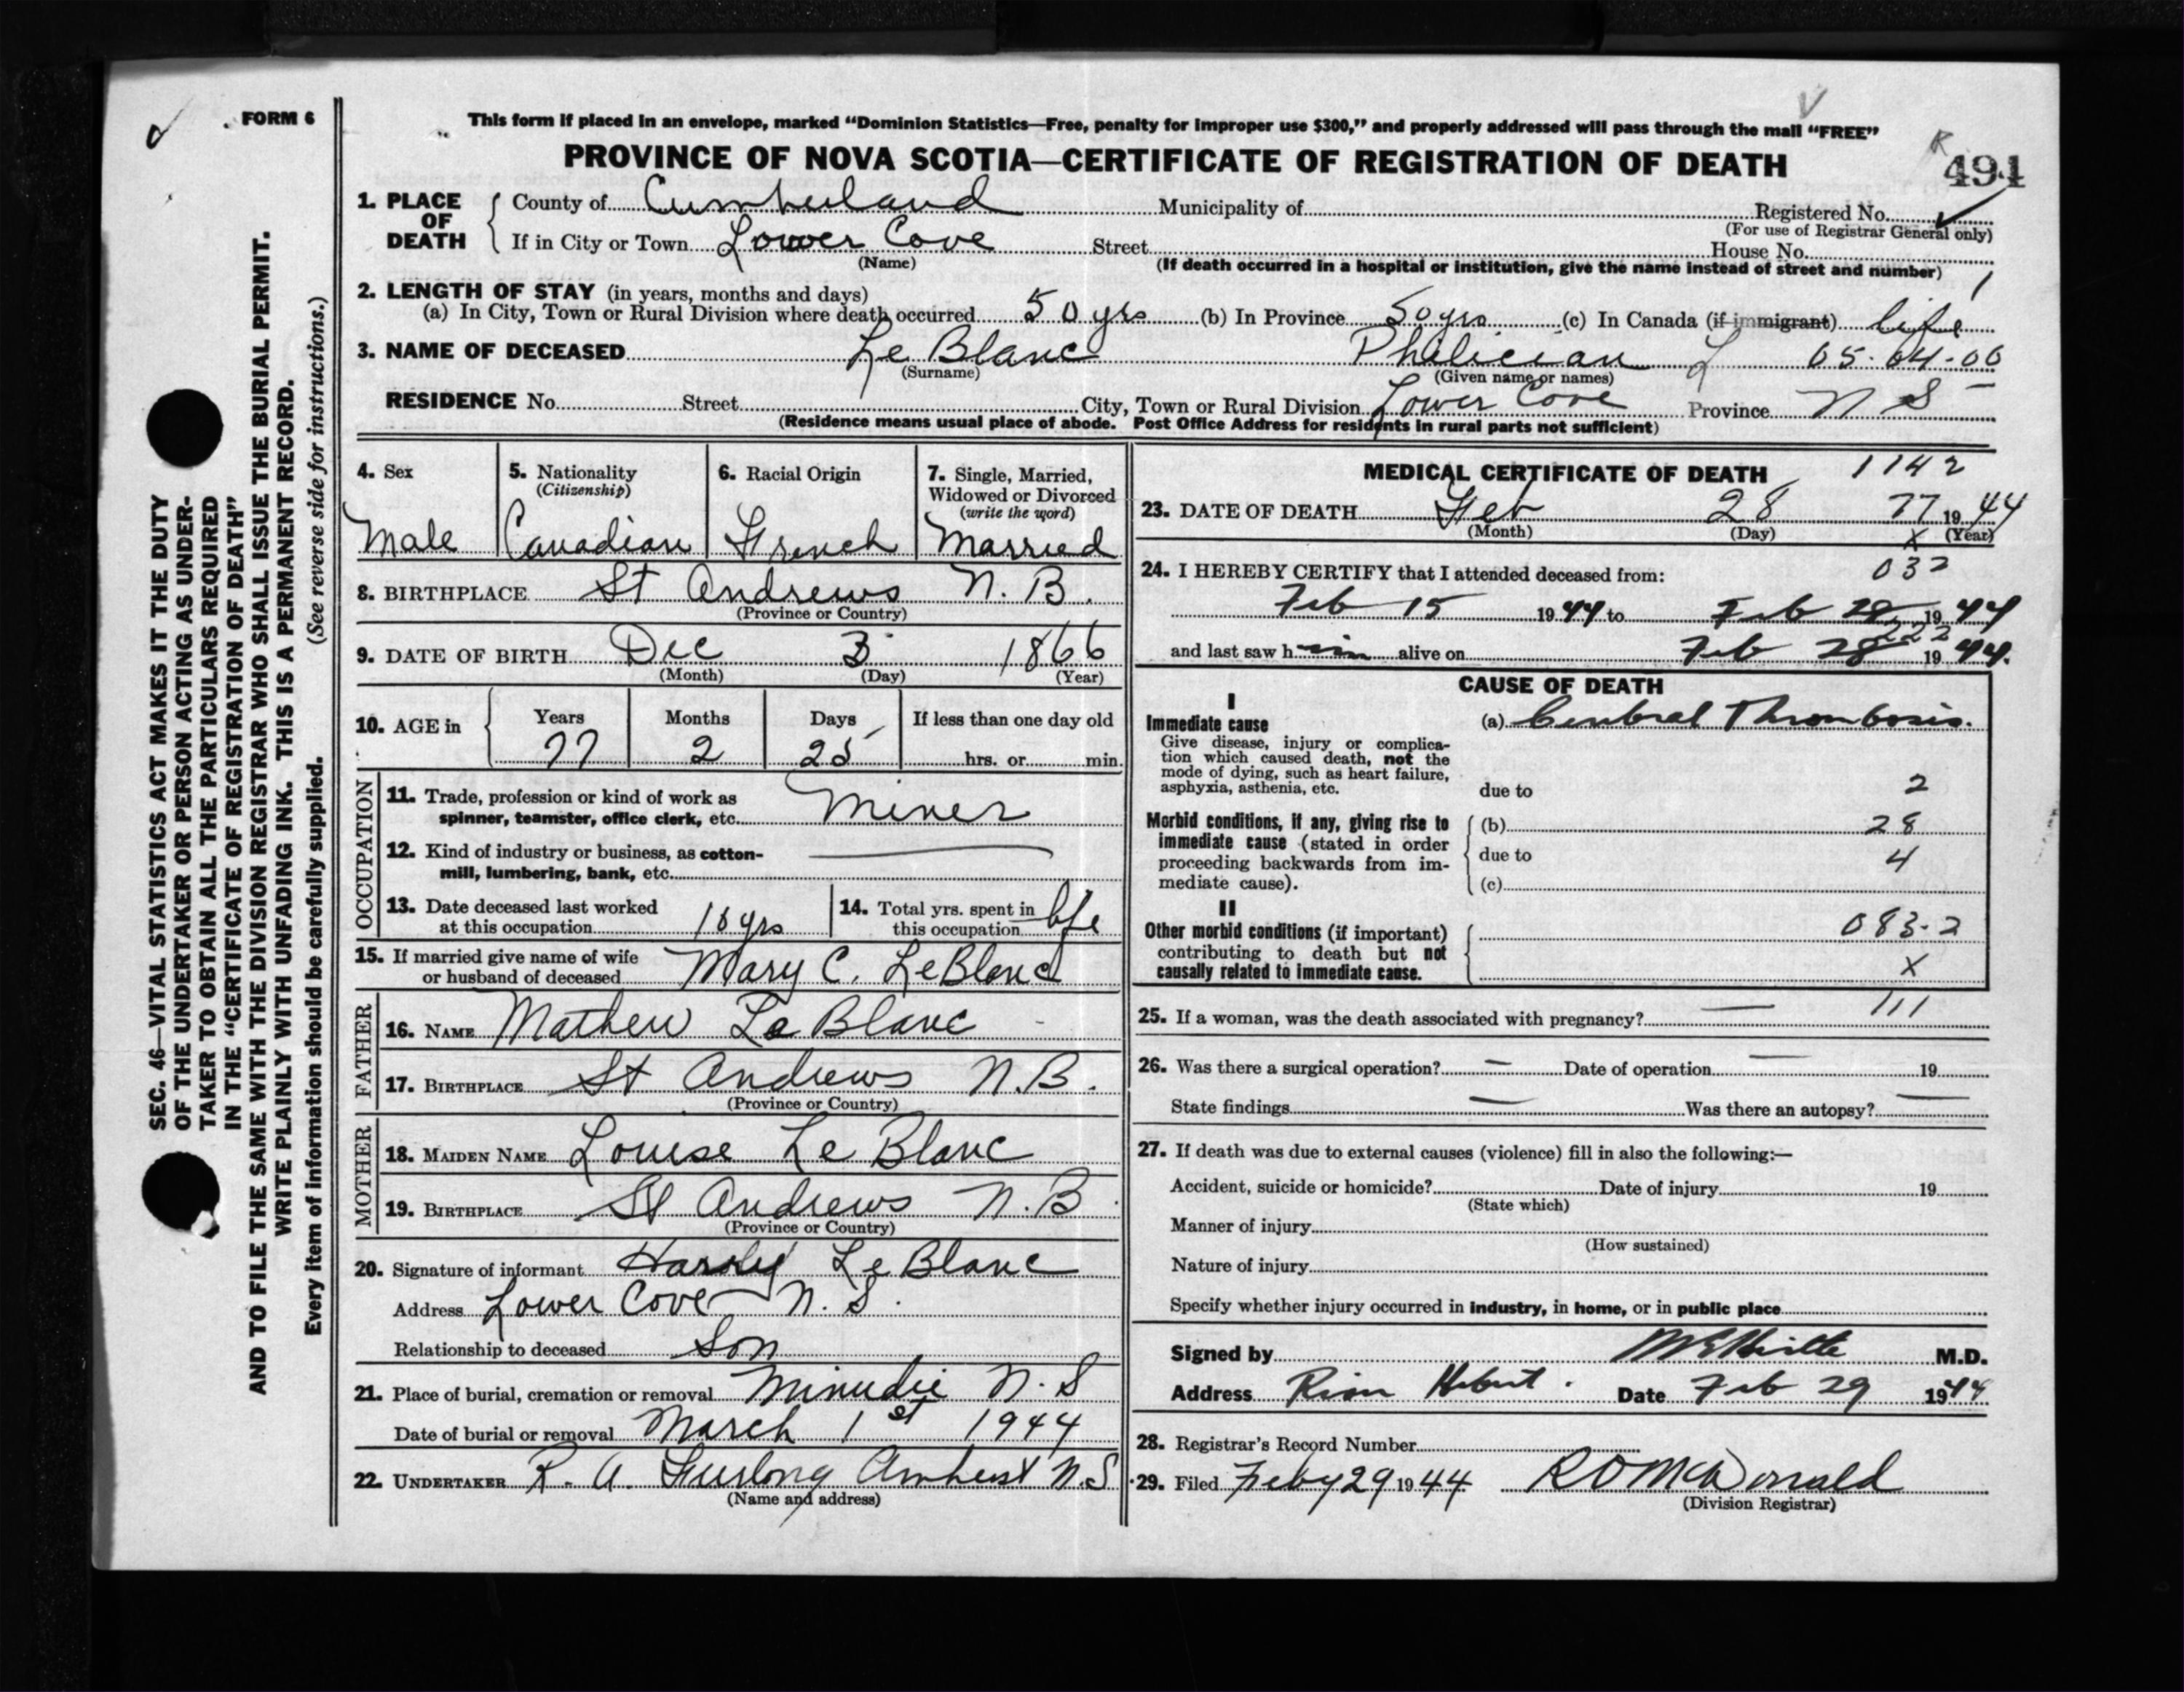 FORM 6
This form if placed in an envelope, marked “Dominion Statistics—Free, penalty for improper use $300,” and properly addressed will pass through the mail “FREE”
PROVINCE OF NOVA SCOTIA—CERTIFICATE OF REGISTRATION OF DEATH
494
1. PLACE OF DEATH
County of Cumberland Municipality of Registered No.
(For use of Registrar General only)
If in City or Town Lower Cove Street House No.
(Name) (If death occurred in a hospital or institution, give the name instead of street and number)
2. LENGTH OF STAY (in years, months and days)
(a) In City, Town or Rural Division where death occurred 50 yrs (b) In Province 50 yrs. (c) In Canada (if immigrant) life
3. NAME OF DECEASED Le Blanc Philician L 05-04-00
(Surname) (Given name or names)
RESIDENCE No. Street City, Town or Rural Division Lower Cove Province N S
(Residence means usual place of abode. Post Office Address for residents in rural parts not sufficient)
4. Sex
Male
5. Nationality
(Citizenship)
Canadian
6. Racial Origin
French
7. Single, Married,
Widowed or Divorced
(write the word)
Married
8. BIRTHPLACE St Andrews N. B.
(Province or Country)
9. DATE OF BIRTH Dec 3 1866
(Month) (Day) (Year)
10. AGE in Years Months Days If less than one day old
77 2 25 hrs. or min.
OCCUPATION
11. Trade, profession or kind of work as
spinner, teamster, office clerk, etc. Miner
12. Kind of industry or business, as cotton-
mill, lumbering, bank, etc.
13. Date deceased last worked
at this occupation 10 yrs
14. Total yrs. spent in
this occupation life
15. If married give name of wife
or husband of deceased Mary C. LeBlanc
FATHER
16. NAME Mathew Le Blanc
17. BIRTHPLACE St Andrews N.B.
(Province or Country)
MOTHER
18. MAIDEN NAME Louise Le Blanc
19. BIRTHPLACE St Andrews N.B
(Province or Country)
20. Signature of informant Le Blanc
Address Lower Cove N. S.
Relationship to deceased Son
21. Place of burial, cremation or removal Minudie N. S
Date of burial or removal March 1st 1944
22. UNDERTAKER R. A. Furlong Amherst N.S
(Name and address)
MEDICAL CERTIFICATE OF DEATH 1142
23. DATE OF DEATH Feb 28 77 1944
(Month) (Day) x (Year)
24. I HEREBY CERTIFY that I attended deceased from: 032
Feb 15 1944 to Feb 28 1944
222
and last saw him alive on Feb 28 1944.
CAUSE OF DEATH
I
Immediate cause
Give disease, injury or complica-
tion which caused death, not the
mode of dying, such as heart failure,
asphyxia, asthenia, etc.
(a) Cerebral Thrombosis.
due to 2
Morbid conditions, if any, giving rise to
immediate cause (stated in order
proceeding backwards from im-
mediate cause).
(b) 28
due to 4
(c)
II
Other morbid conditions (if important)
contributing to death but not
causally related to immediate cause.
083-2
X
25. If a woman, was the death associated with pregnancy? — 111
26. Was there a surgical operation? — Date of operation — 19
State findings — Was there an autopsy? —
27. If death was due to external causes (violence) fill in also the following:—
Accident, suicide or homicide? Date of injury 19
(State which)
Manner of injury
(How sustained)
Nature of injury
Specify whether injury occurred in industry, in home, or in public place
Signed by M.D.
Address River Hebert. Date Feb 29 1944
28. Registrar's Record Number
29. Filed Feby 29 1944 R O McDonald
(Division Registrar)
SEC. 46—VITAL STATISTICS ACT MAKES IT THE DUTY
OF THE UNDERTAKER OR PERSON ACTING AS UNDER-
TAKER TO OBTAIN ALL THE PARTICULARS REQUIRED
IN THE “CERTIFICATE OF REGISTRATION OF DEATH”
AND TO FILE THE SAME WITH THE DIVISION REGISTRAR WHO SHALL ISSUE THE BURIAL PERMIT.
WRITE PLAINLY WITH UNFADING INK. THIS IS A PERMANENT RECORD.
Every item of information should be carefully supplied. (See reverse side for instructions.)